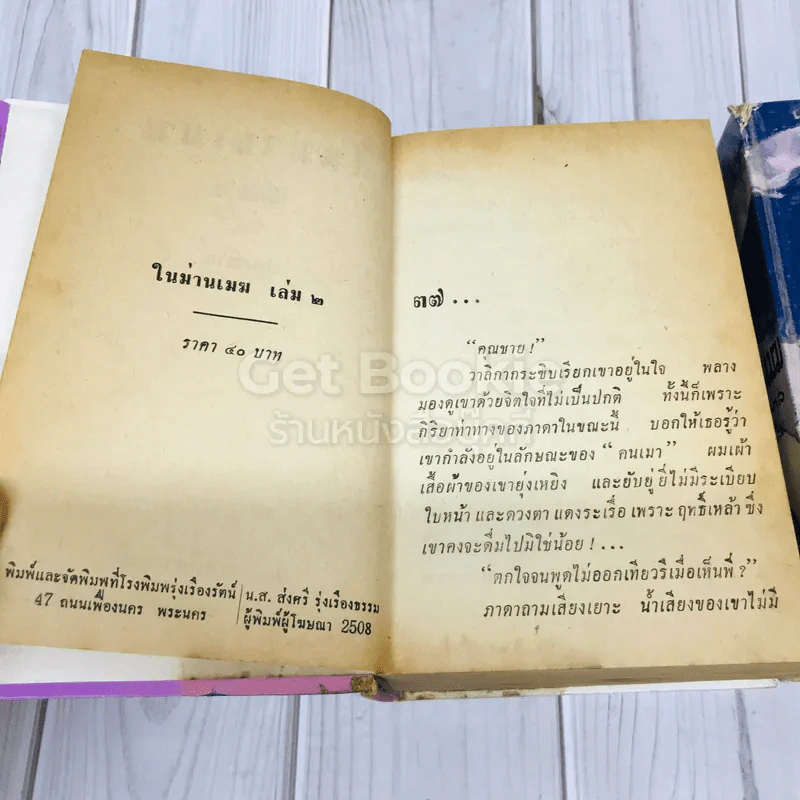 ในม่านเมฆ เล่ม ๒
ราคา ๔๐ บาท
พิมพ์และจัดพิมพ์ที่โรงพิมพรุ่งเรืองรัตน์
47 ถนนเฟื่องนคร พระนคร
น.ส. ส่งศรี รุ่งเรืองธรรม
ผู้พิมพ์ผู้โฆษณา 2508
๓๗...
“คุณชาย!”
วาลิกากระซิบเรียกเขาอยู่ในใจ พลาง
มองดูเขาด้วยจิตใจที่ไม่เป็นปกติ ทั้งนี้ก็เพราะ
กิริยาท่าทางของภาดาในขณะนี้ บอกให้เธอรู้ว่า
เขากำลังอยู่ในลักษณะของ “คนเมา” ผมเผ้า
เสื้อผ้าของเขายุ่งเหยิง และยับยู่ยี่ไม่มีระเบียบ
ใบหน้า และดวงตา แดงระเรื่อ เพราะ ฤทธิ์เหล้า ซึ่ง
เขาคงจะดื่มไปมิใช่น้อย!...
“ตกใจจนพูดไม่ออกเทียวรึเมื่อเห็นพี่?”
ภาดาถามเสียงเยาะ น้ำเสียงของเขาไม่มี
Get Bookie
ร้านหนังสือบุ๊คกี้